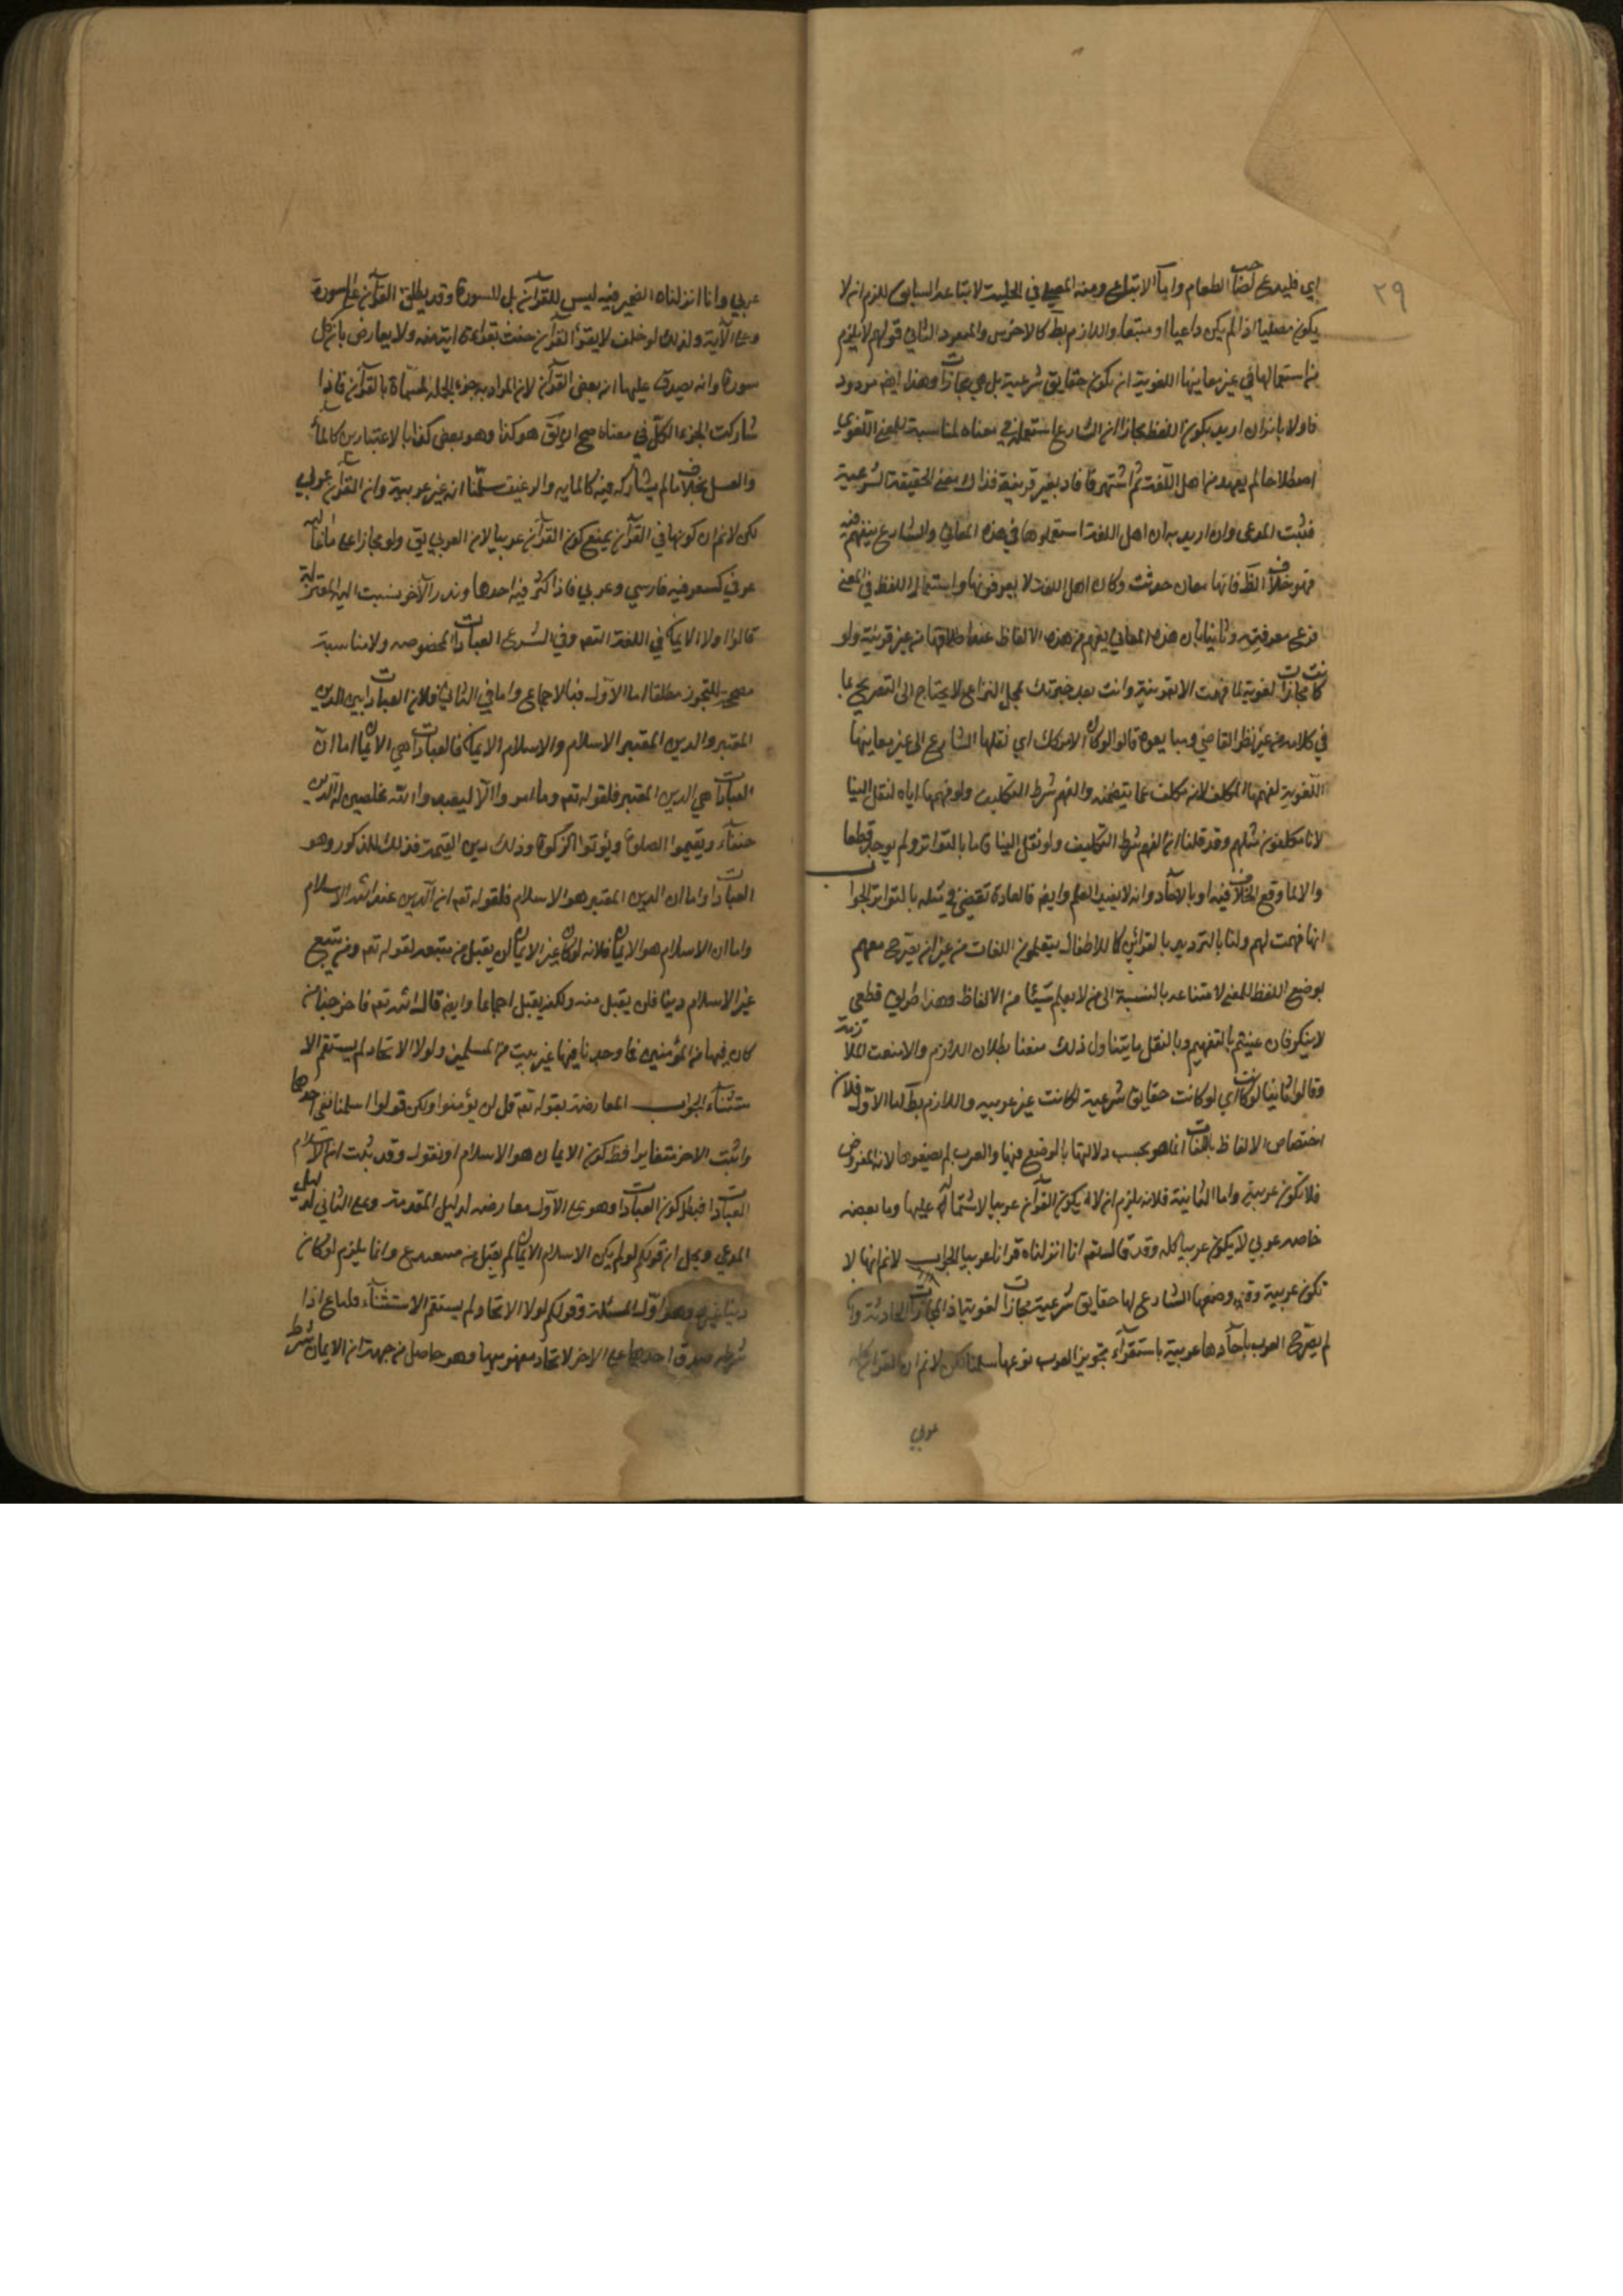 ٢٩
اي فليدع لصاحب الطعام واما الاتباع ومنه المصلي في الحلبة لاتباعه السابق للزم ان لا
يكون مصليا اذا لم يكن داعيا او متبعا واللازم بط كالاخرس والمنفرد الثاني قولهم لا يلزم
من استعمالها في غير معانيها اللغوية ان يكون حقايق شرعية بل هي مجازات وهذا ايض مردود
فاولا بانه ان اريد بكون اللفظ مجازا ان الشارع استعمله في معناه لمناسبة للمعنى اللغوي
اصطلاحا لم يعهد من اهل اللغة ثم اشتهر فافاد بغير قرينة فذاك معنى الحقيقة الشرعية
فثبت المدعى وان اريد به ان اهل اللغة استعملوها في هذه المعاني والشارع تبعهم فيه
فهو خلاف الظ فانها معان حدثت وكان اهل اللغة لا يعرفونها واستعمال اللفظ في المعنى
فرع معرفته وثانيا بان هذه المعاني يفهم من هذه الالفاظ عند اطلاقها من غير قرينة ولو
كانت مجازات لغوية لما فهمت الا بقرينة وانت بعد خبرتك بمحل النزاع لا يحتاج الى التصريح بما
في كلامه من غير نظر القاضي ومتابعوه قالوا لو كان الامر كك اي نقلها الشارع الى غير معانيها
اللغوية لفهمها المكلف لانه مكلف بما يتضمنه والفهم شرط التكليف ولو فهمها اياه لنقل الينا
لانا مكلفون مثلهم وقد قلنا ان الفهم شرط التكليف ولو نقل الينا فاما بالتواتر ولم يوجد قطعا
والا لما وقع الخلاف فيه او بالاحاد وانه لا يفيد العلم وايض فالعادة تقضي في مثله بالتواتر الجواب
انها فهمت لهم ولنا بالترديد بالقرائن كالاطفال يتعلمون اللغات من غير ان يصرح معهم
بوضع اللفظ للمعنى لامتناعه بالنسبة الى من لا يعلم شيئا من الالفاظ وهذا طريق قطعي
لا ينكر فان عنيتم بالتفهيم وبالنقل ما يتناول ذلك منعنا بطلان اللازم والا منعت الملازمة
وقالوا ثانيا لو كانت اي لو كانت حقايق شرعية لكانت غير عربيه واللازم بط اما الاول فلان
اختصاص الالفاظ باللغات انما هو بحسب دلالتها بالوضع فيها والعرب لم يضعوها لانه المفروض
فلا تكون عربية واما الثانية فلانه يلزم ان لا يكون القرآن عربيا لاشتماله عليها وما بعضه
خاصه عربي لا يكون عربيا كله وقد قال تع انا انزلناه قرانا عربيا الجواب لانم انها لا
تكون عربية وقد وضعها الشارع لها حقايق شرعية مجازات لغوية اذ المجازات الحادثة وان
لم يصرح العرب باحادها عربية باستقرآء تجويز العرب نوعها سلمنا لكن لانم ان القران كله
عربي
عربي وانا انزلناه الضمير فيه ليس للقرآن بل للسورة وقد يطلق القرآن على السورة
وعلى الآية ولذلك لو حلف لا يقرأ القرآن حنث بقراءة اية منه ولا يعارض بان كل
سورة وانه يصدق عليها انه بعض القرآن لان المراد به جزء الجملة المسماة بالقرآن فاذا
شاركت الجزء الكل في معناه صح ان يق هو كذا وهو بعض كذا بالاعتبارين كالماء
والعسل بخلاف ما لم يشاركه فيه كالمائة والرغيف سلمنا انه غير عربية وان القرآن عربي
لكن لانم ان كونها في القرآن يمنع كون القرآن عربيا لان العربي يق ولو مجازا على ما غالبه
عربي كشعر فيه فارسي وعربي فاذا كثر فيه احدها وندر الآخر ينسب اليه المعتزلة
قالوا اولا الايمان في اللغة التص وفي الشرع العبادات المخصوصه ولا مناسبة
مصححة للتجوز مطلقا اما الاول فبالاجماع واما في الثاني فلان العبادات هي الدين
المعتبر والدين المعتبر الاسلام والاسلام الايمان فالعبادات هي الايمان اما ان
العبادات هي الدين المعتبر فلقوله تع وما امروا الا ليعبدوا الله مخلصين له الدين
حنفاء ويقيموا الصلوة ويؤتوا الزكوة وذلك دين القيمة فذلك للمذكور وهو
العبادات واما ان الدين المعتبر هو الاسلام فلقوله تع ان الدين عند الله الاسلام
واما ان الاسلام هو الايمان فلانه لو كان غير الايمان لن يقبل من مبتغيه لقوله تع ومن يبتغ
غير الاسلام دينا فلن يقبل منه ولكنه يقبل اجماعا وايض قال الله تع فاخرجنا من
كان فيها من المؤمنين فما وجدنا فيها غير بيت من المسلمين ولولا الاتحاد لم يستقم الا
ستثناء الجواب المعارضة بقوله تع قل لن يؤمنوا ولكن قولوا اسلمنا نفى احدها
واثبت الاخر فتغايرا فبطل كون الايمان هو الاسلام او نقول وقد ثبت ان الاسلام
العبادات فبطل كون العبادات وهو على الاول معارضه لدليل المقدمة وعلى الثاني لدليل
المدعي ويحل ان قولكم لو لم يكن الاسلام الايمان لم يقبل من مبتغيه م وانما يلزم لو كان
دينا غيره وهو اول المسئلة وقولكم لولا الاتحاد لم يستقم الاستثناء قلنا م اذا
شرطه صدق احدهما على الاخر لا اتحاد مفهوميهما وهو حاصل من جهة ان الايمان شرط